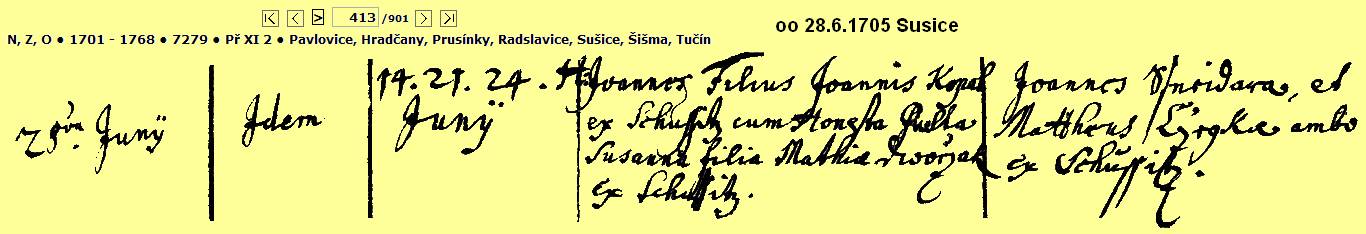 413 /901
oo 28.6.1705 Susice
N, Z, O ● 1701 - 1768 ● 7279 ● Př XI 2 ● Pavlovice, Hradčany, Prusínky, Radslavice, Sušice, Šišma, Tučín
28va. Junÿ
Idem
14. 21. 24.
Junÿ
Joannes Filius Joannis Kopal
ex Schussitz cum Honesta Puella
Susanna filia Mathiæ Dworzak
ex Schussitz.
Joannes et
Mattheus ambo
ex Schussitz.